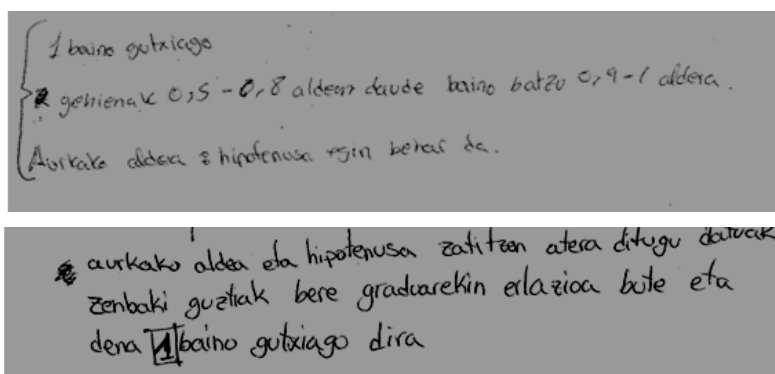 1 baino gutxiago
gehienak 0,5 - 0,8 aldean daude baino batzu 0,9-1 aldera.
Aurkako aldea : hipotenusa egin behar da.
aurkako aldea eta hipotenusa zatitzen atera ditugu datuak
zenbaki guztiak bere graduarekin erlazioa bute eta
dena 1 baino gutxiago dira